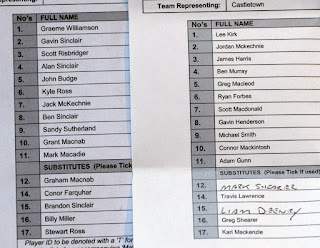 Representing:
No's FULL NAME
1. Graeme Williamson
2. Gavin Sinclair
3. Scott Risbridger
4. Alan Sinclair
5. John Budge
6. Kyle Ross
7. Jack McKechnie
8. Ben Sinclair
9. Sandy Sutherland
10. Grant Macnab
11. Mark Macadie
SUBSTITUTES (Please Tick
12. Graham Macnab
14. Conor Farquhar
15. Brandon Sinclair
16. Billy Miller
17. Stewart Ross
Player ID to be denoted with a 'T' for
Team Representing: Castletown
No's FULL NAME
1. Lee Kirk
2. Jordan Mckechnie
3. James Harris
4. Ben Murray
5. Greg Macleod
6. Ryan Forbes
7. Scott Macdonald
8. Gavin Henderson
9. Michael Smith
10. Connor Mackintosh
11. Adam Gunn
SUBSTITUTES (Please Tick If used)
12. MARK SHEARER
14. Travis Lawrence
15. LIAM
16. Greg Shearer
17. Kari Mackenzie